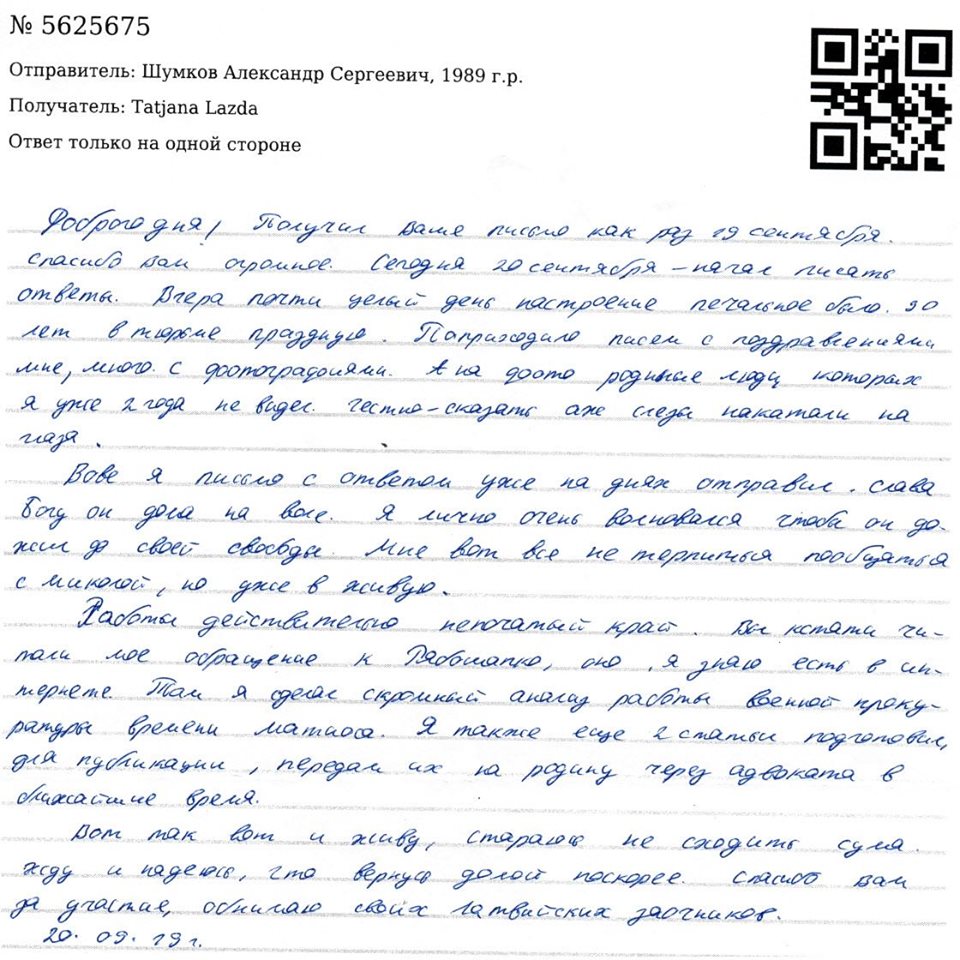 № 5625675
Отправитель: Шумков Александр Сергеевич, 1989 г.р.
Получатель: Tatjana Lazda
Ответ только на одной стороне
Доброго дня! Получил Ваше письмо как раз 19 сентября.
Спасибо Вам огромное. Сегодня 20 сентября – начал писать
ответы. Вчера почти целый день настроение печальное было. 30
лет в тюрьме праздную. Поприходило писем с поздравлениями
мне, много с фотографиями. А на фото родные люди которых
я уже 2 года не видел. Честно-сказать аж слезы накатали на
глаза.
Вове я письмо с ответом уже на днях отправил. Слава
Богу он дома на воле. Я лично очень волновался чтобы он до-
жил до своей свободы. Мне вот все не терпиться пообщаться
с Миколой, но уже в живую.
Работы действительно непочатый край. Вы кстати чи-
тали мое обращение к Рябошапко, оно, я знаю есть в ин-
тернете. Там я сделал скромный анализ работы военной проку-
ратуры времени Матиоса. Я также еще 2 статьи подготовил,
для публикации, передам их на родину через адвоката в
ближайшие время.
Вот так вот и живу, стараюсь не сходить сума.
Жду и надеюсь, что вернусь домой поскорее. Спасибо Вам
за участие, обнимаю своих Латвийских заочников.
20. 09. 19 г.